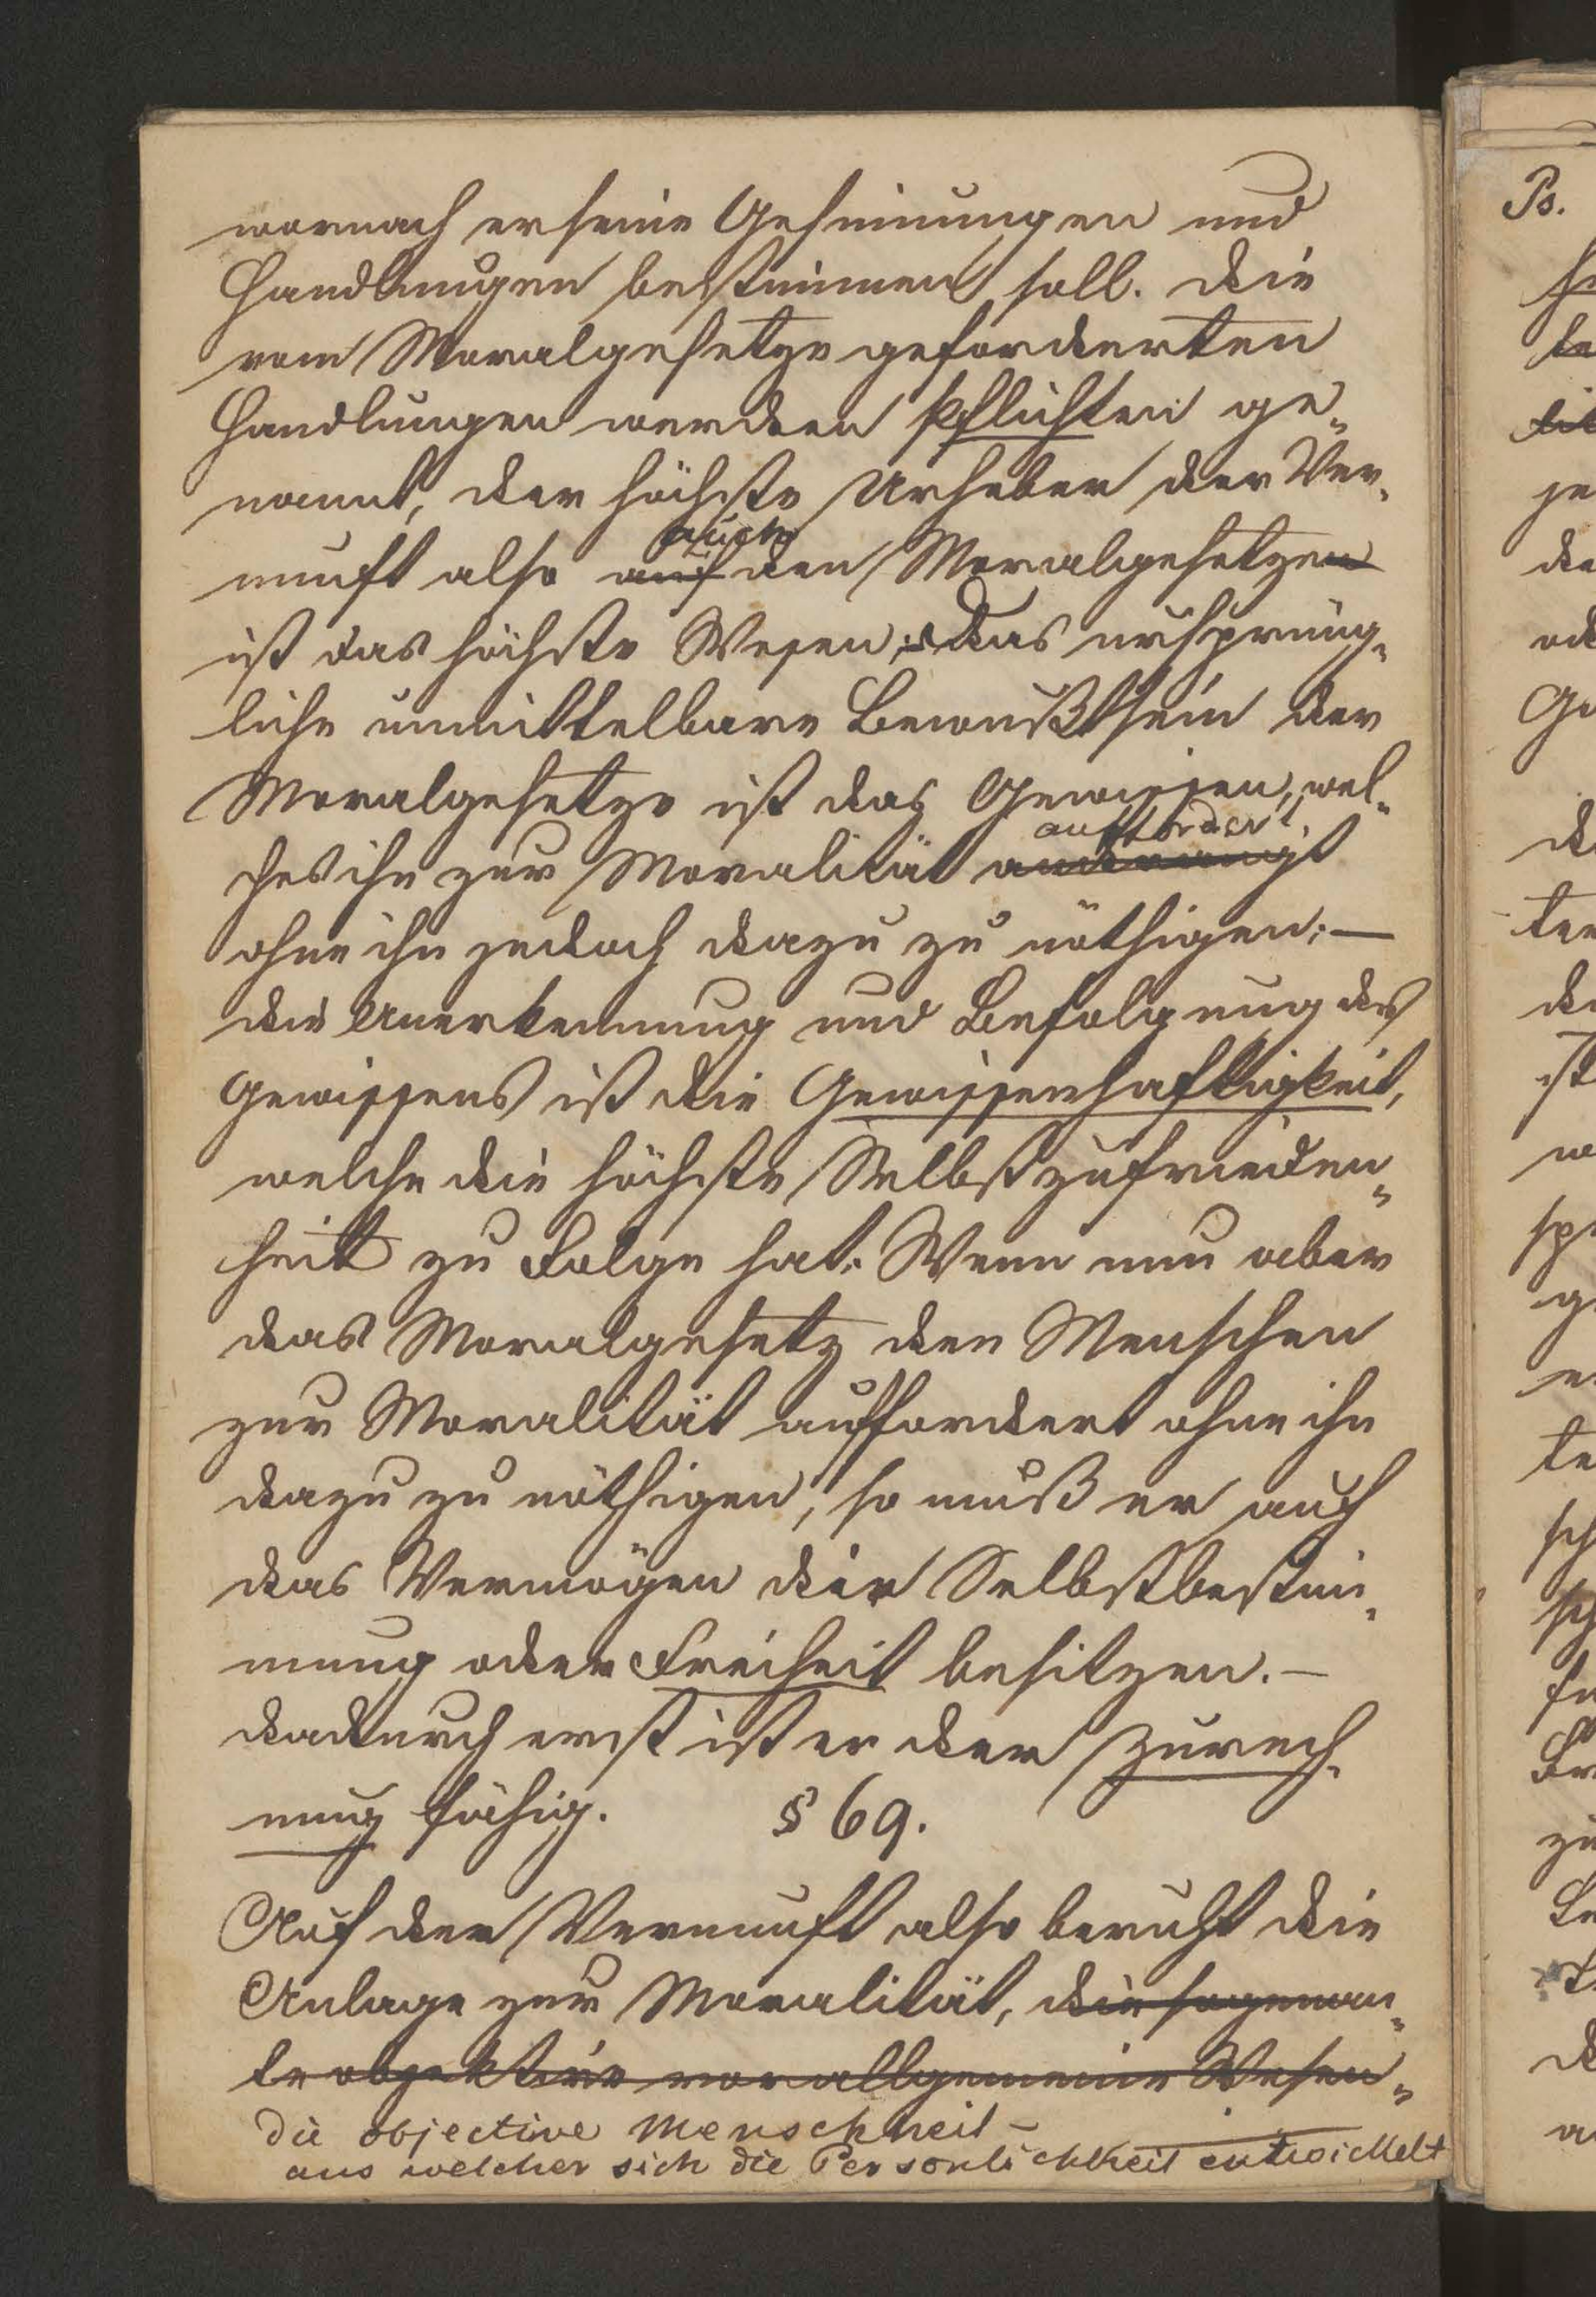 wornach er seine Gesinnungen und
Handlungen bestimmen soll. die
vom Moralgesetze geforderten
Handlungen werden Pflichten ge-
nannt, der höchste Urheber der Ver-
auch
nunft also auf den Moralgesetzen
ist das höchste Wesen; Das ursprüng-
liche unmittelbare Bewußtsein der
Moralgesetze ist das Gewissen, wel-
auffordert,
ches ihn zur Moralität
ohne ihn jedoch dazu zu nöthigen; —
die Anerkennung und Befolgung des
Gewissens ist die Gewissenhaftigkeit,
welche die höchste Selbstzufrieden-
heit zu Folge hat. Wenn nun aber
das Moralgesetz den Menschen
zur Moralität auffordert ohne ihn
dazu zu nöthigen, so muß er auch
das Vermögen der Selbstbestim-
mung oder Freiheit besitzen. —
dadurch erst ist er der Zurech-
nung fähig. § 69.
Auf der Vernunft also beruht die
Anlage zur Moralität, die sogenan-
te objektive allgemeine Wesen-
die objective Menschheit —
aus welcher sich die Persönlichkeit entwickelt
Ps.